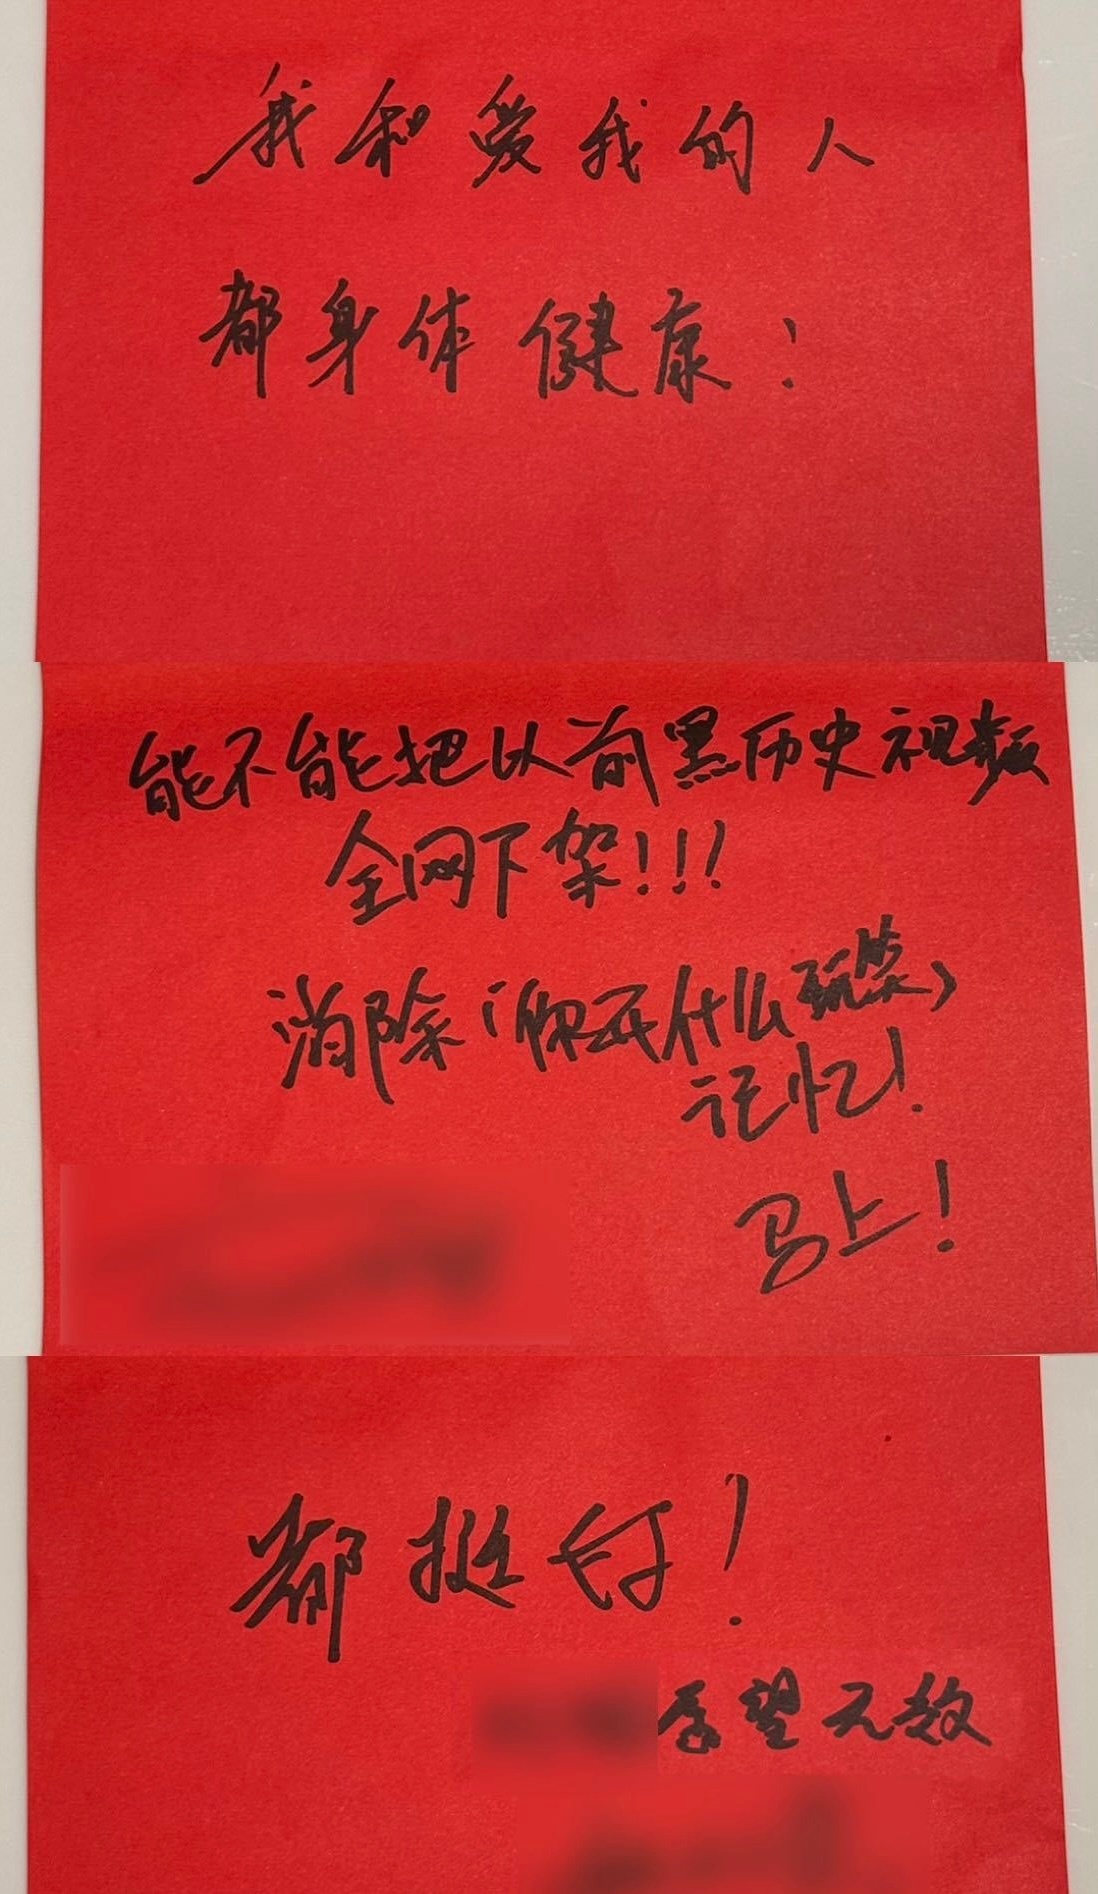 我和爱我的人
都身体健康!
能不能把以前黑历史视频
全网下架!!!
消除“你开什么玩笑”
记忆!
马上!
都挺好!
愿望无敌